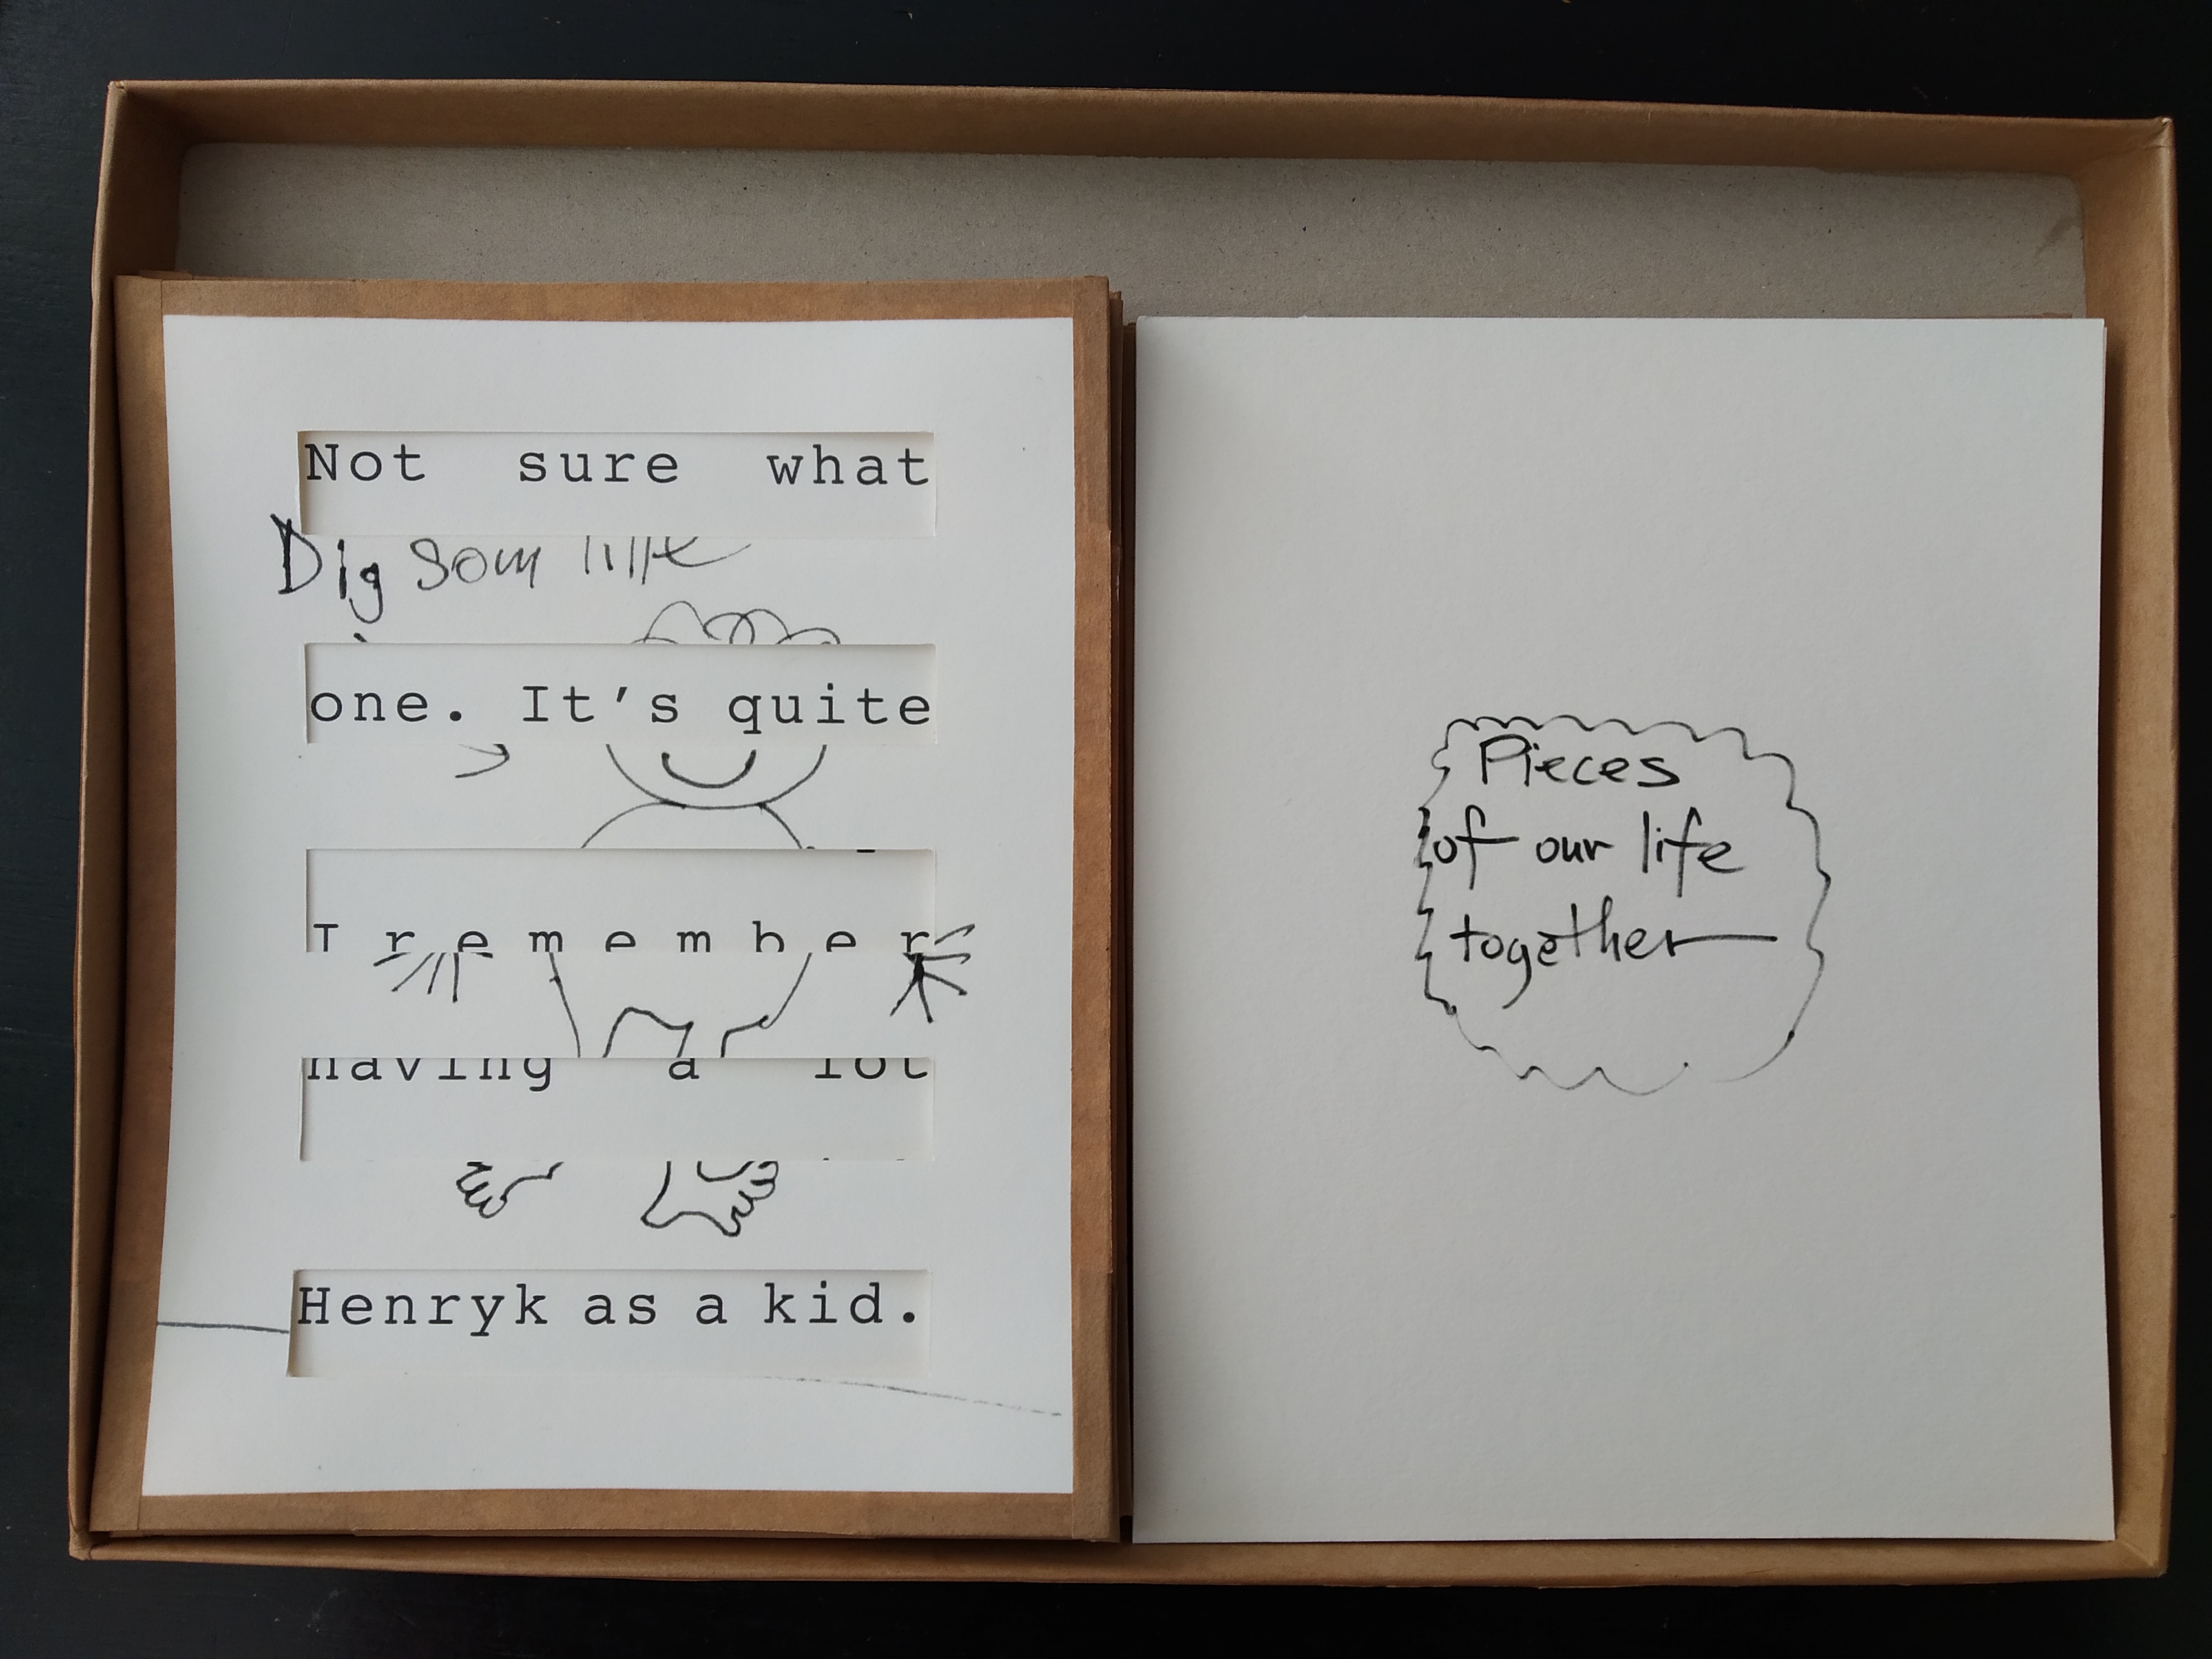 Not sure what
Dig som lille
one. It's quite
I remember
having a lot
Henryk as a kid.
Pieces
of our life
together